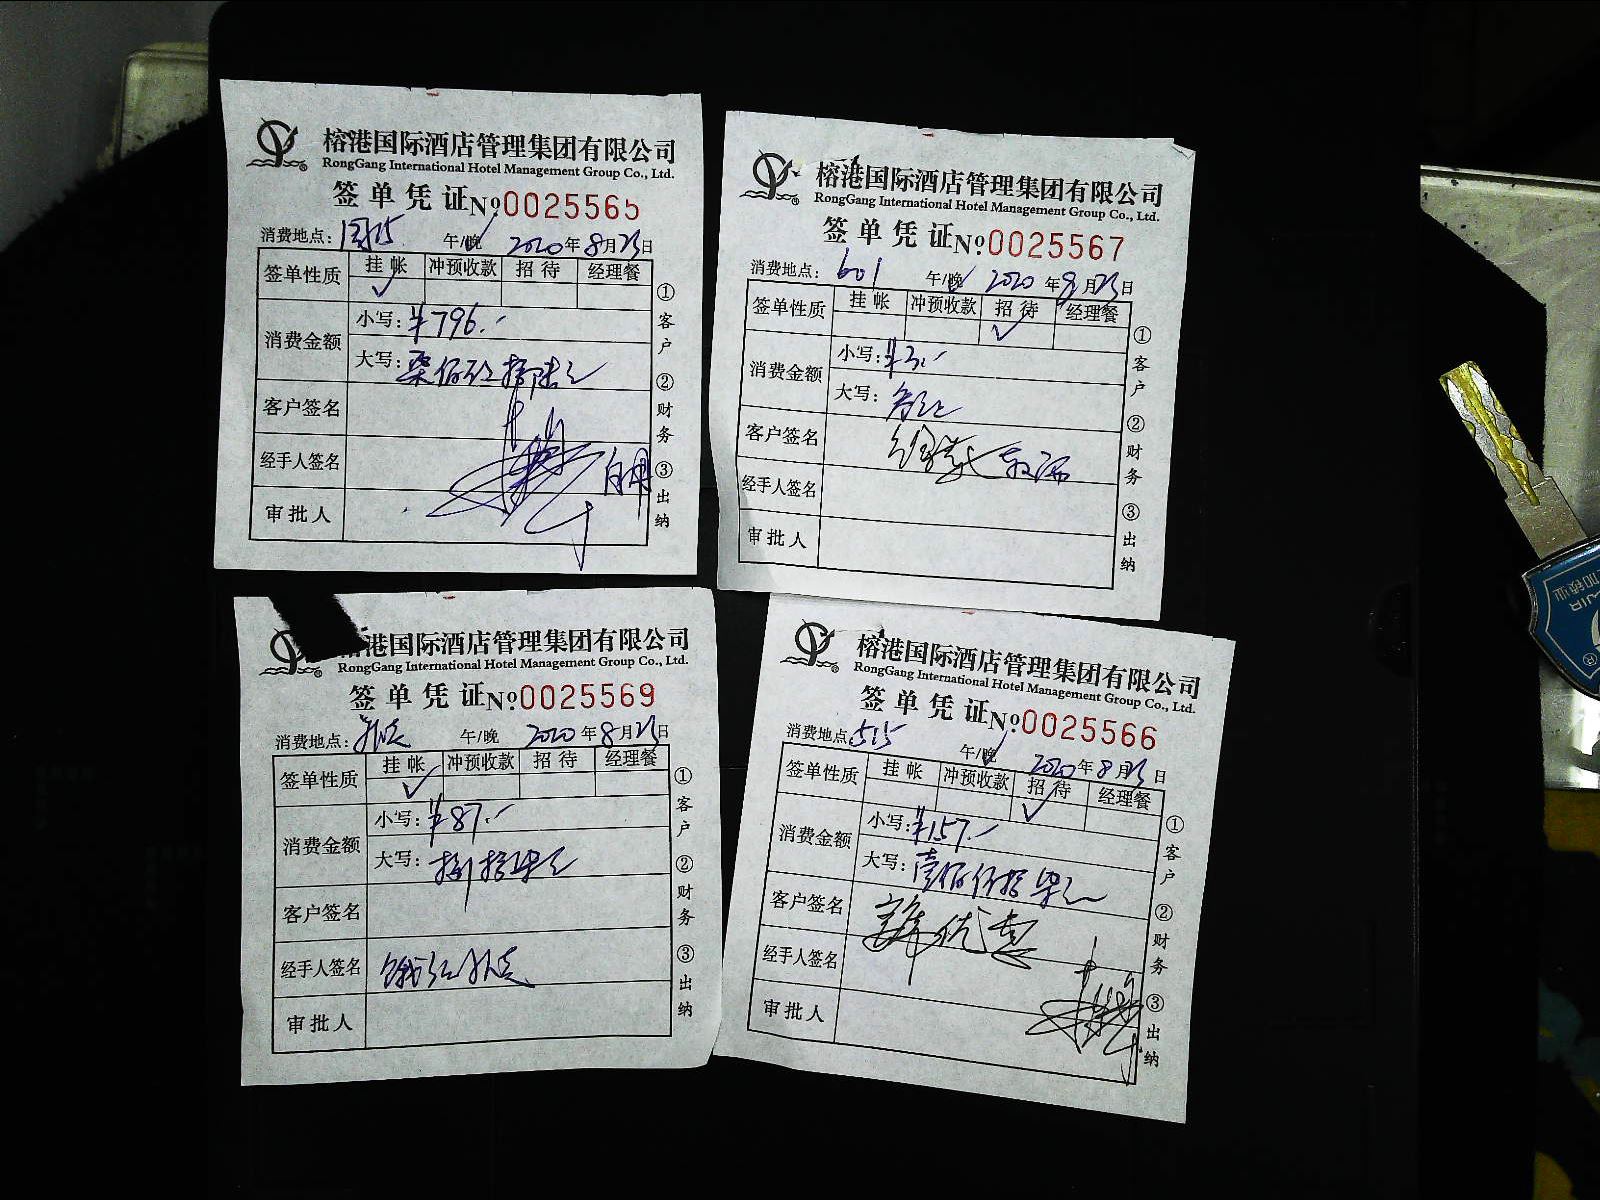 榕港国际酒店管理集团有限公司
RongGang International Hotel Management Group Co., Ltd.
签单凭证 №0025565
消费地点: 午/晚 2020年8月23日
签单性质 挂帐 冲预收款 招待 经理餐
✓
消费金额 小写: ¥796.-
大写: 柒佰玖拾陆元
客户签名
经手人签名
审批人
①客户 ②财务 ③出纳
榕港国际酒店管理集团有限公司
RongGang International Hotel Management Group Co., Ltd.
签单凭证 №0025567
消费地点: 601 午/晚 2020年8月23日
签单性质 挂帐 冲预收款 招待 经理餐
✓
消费金额 小写: ¥3.-
大写: 叁元
客户签名
经手人签名
审批人
①客户 ②财务 ③出纳
港国际酒店管理集团有限公司
RongGang International Hotel Management Group Co., Ltd.
签单凭证 №0025569
消费地点: 午/晚 2020年8月23日
签单性质 挂帐 冲预收款 招待 经理餐
✓
消费金额 小写: ¥87.-
大写: 捌拾柒元
客户签名
经手人签名
审批人
①客户 ②财务 ③出纳
榕港国际酒店管理集团有限公司
RongGang International Hotel Management Group Co., Ltd.
签单凭证 №0025566
消费地点: 515 午/晚 2020年8月23日
签单性质 挂帐 冲预收款 招待 经理餐
✓
消费金额 小写: ¥157.-
大写: 壹佰伍拾柒元
客户签名
经手人签名
审批人
①客户 ②财务 ③出纳